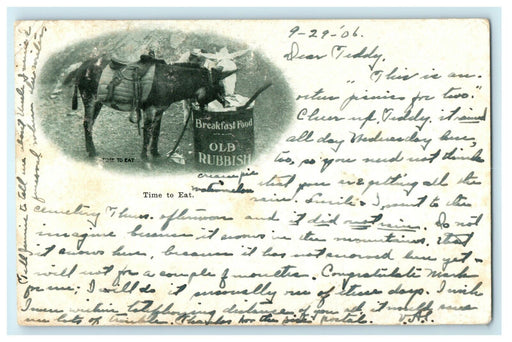 9-29-'06.
Dear Teddy,
"This is an-
other picnic for two."
Cheer up, Teddy, it and
all day Wednesday here,
too, so you need not think
that you are getting all the
rain. Emilie & I went to the
cemetery Thurs. afternoon and it did not rain. Do not
imagine because it snows in the mountains, that
it snows here, because it has not snowed here yet &
will not for a couple of months. Congratulate
for me; I will do it personally one of these days. I wish
I were within distance of you, as it would save
me lots of trouble. Thanks for the postal.
creampie
watermelon
TIME TO EAT
Breakfast Food
OLD
RUBBISH
Time to Eat.